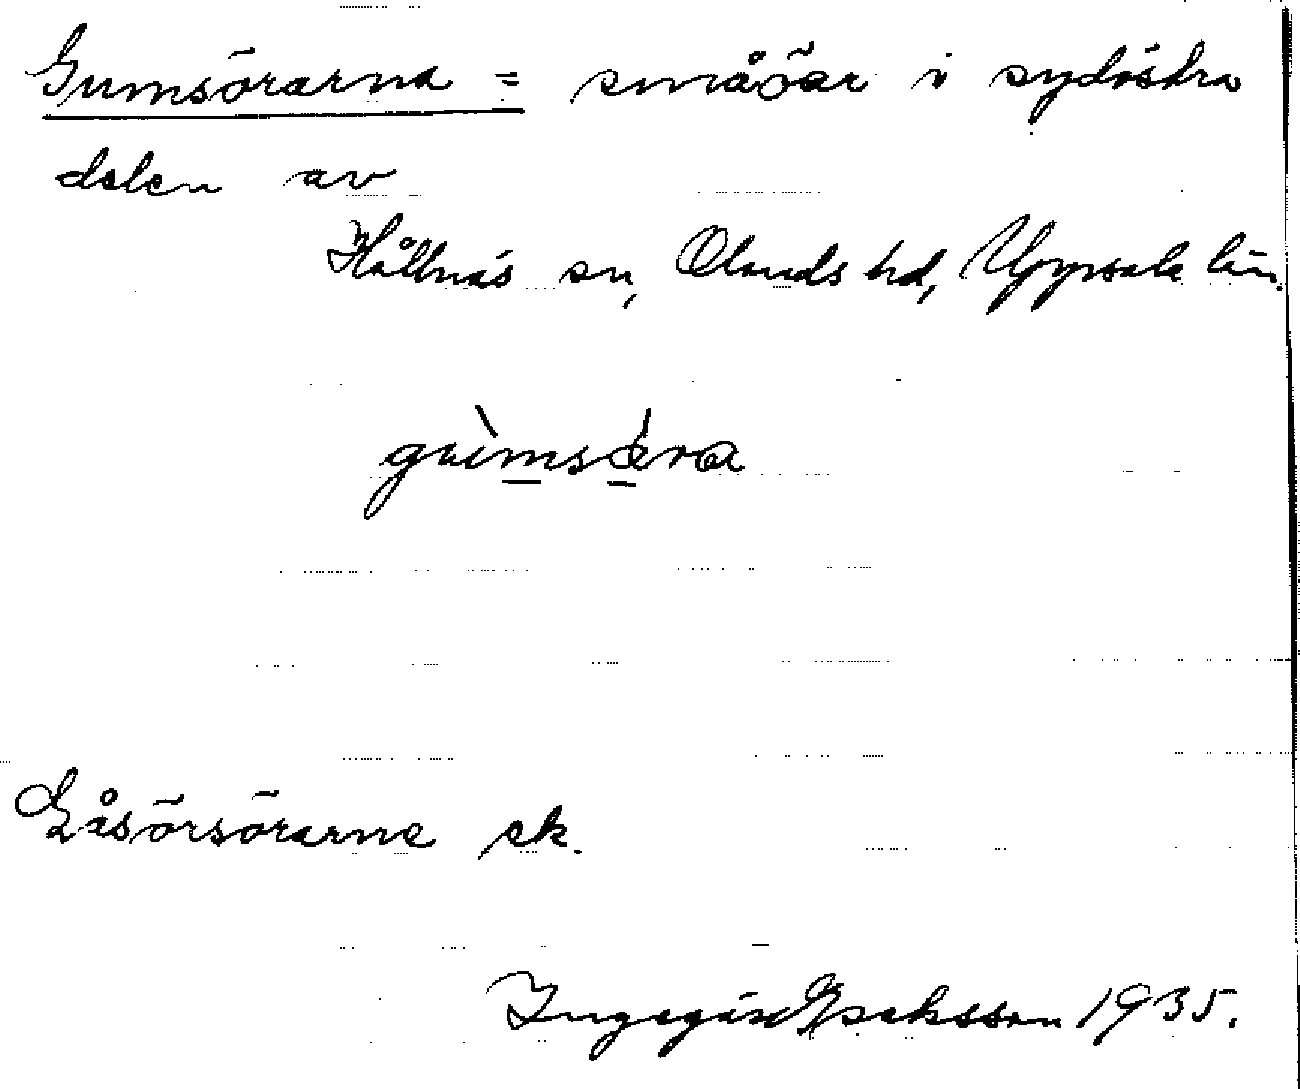 Gumsörarna = småöar i sydöstra
delen av
Hållnäs sn, Olands hd, Uppsala län.
gùmsǿra
Gåsörsörarne ek.
Ingegärd Isaksson 1935.